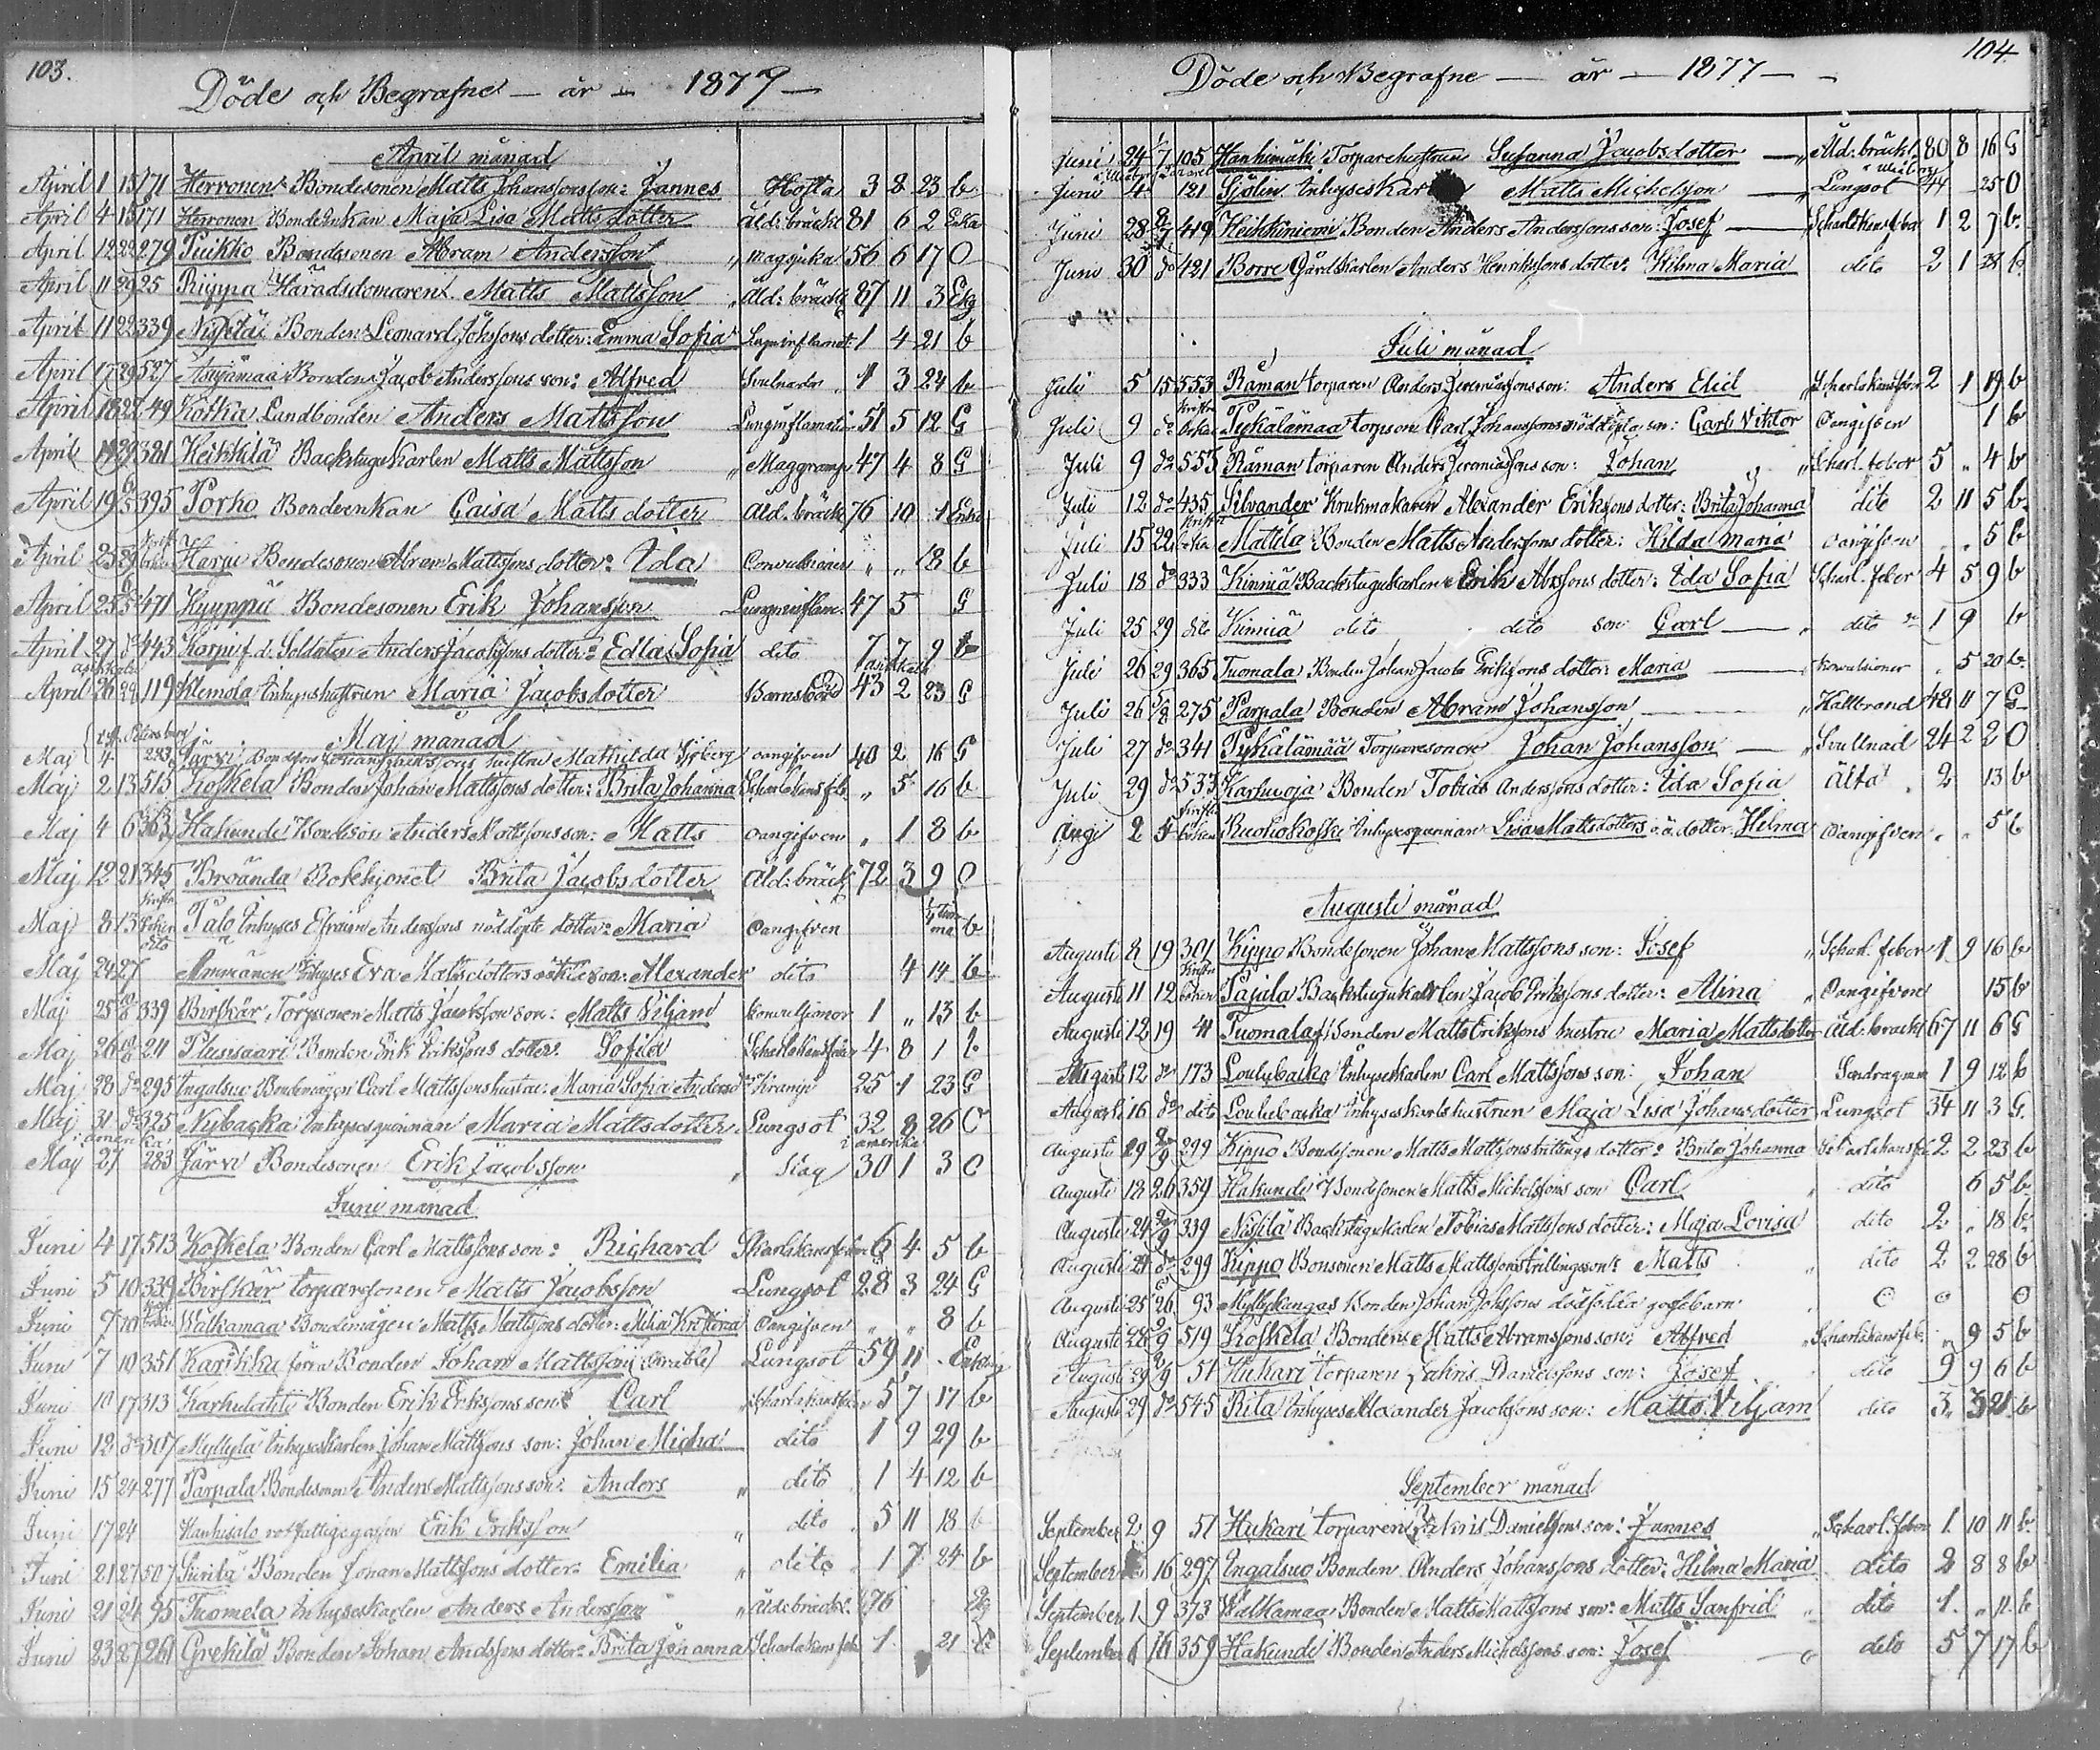 103.
Döde och Begrafne — år — 1877 —
April månad
April 1 15 171 Herronen Bondesonen Matts Johanssons son: Jannes Hosta 3 8 23 b
April 4 15 171 Herronen Bondeenkan Maja Lisa Mattsdotter Åld: bräckl 81 6 2 Enka
April 12 22 279 Puikko Bondesonen Abram Andersson magsjuka 56 6 17 O
April 11 29 25 Riippa Häradsdomaren Matts Mattsson åld: bräckl 87 11 3
April 11 22 339 Bonden Leonard dotter: Emma Sofia 1 4 21 b
April 17 29 527 Bonden Jacob Anderssons son: Alfred 1 3 24 b
April 18 22 49 Kotka Landbonden Anders Mattsson Lunginflamati 51 5 12 G
April 19 29 381 Heikkilä Backstugukarlen Matts Mattsson Maggramp 47 4 8 G
April 19 6/5 395 Porko Bondeenkan Caisa Mattsdotter åld. bräckl 76 10 1
April 23 29 Harju Bondesonen Abram Mattssons dotter: Ida Convulsioner " " 18 b
April 25 6/5 471 Kyyppä Bondesonen Erik Johansson Lunginflam. 47 5 G
April 27 do 443 Korpi f. d. Soldaten Anders Jacobssons dotter: Edla Sofia dito 7 7 9 b
April 26 29 119 Klemola Inhyseshustrun Maria Jacobsdotter Barnsbörd 43 2 23 G
Maj månad
i St. Petersburg
Maj 4 283 Järvi Bondeson hustru Mathilda Sjöberg oangifven 40 2 16 G
Maj 2 13 513 Koskela Bonden Johan Mattssons dotter: Brita Johanna Scharlakansfb. " 5 16 b
Maj 4 6 363 Hakunde Bondeson Anders Mattssons son: Matts oangifven " 1 8 b
Maj 12 21 345 Broända Rokhjonet Brita Jacobsdotter Åld: bräckl 72 3 9 O
Maj 8 13 Palo Inhyses Efraim Anderssons nöddöpte dotter: Maria Oangifven b
Maj 24 27 Ammänen Inhyses Eva Mattsdotters oäkta son: Alexander dito 4 14 b
Maj 25 339 Birskär, Torpsonen Matts Jacobsson son: Matts Viljam konvulsioner 1 " 13 b
Maj 26 211 Plusisaari Bonden Erik Erikssons dotter: Sofia 4 8 1 b
Maj 28 do 295 Ingalsuo Bondemågen Carl Mattssons hustru: Maria Sofia 25 1 23 G
Maj 31 do 325 Nybacka Inhysesqvinnan Maria Mattsdotter Lungsot 32 8 26 O
i amerika i amerika
Maj 27 283 Järvi Bondesonen Erik Jacobsson Slag 30 1 3 O
Juni månad
Juni 4 17 513 Koskela Bonden Carl Mattssons son: Richard 6 4 5 b
Juni 5 10 339 Birskär torparesonen Matts Jacobsson Lungsot 28 3 24 G
Juni 7 10 Walkamaa Bondemågen Matts Mattssons dotter: Milia Kristina Oangifven " " 8 b
Juni 7 10 351 Karikka förra Bonden Johan Mattsson Lungsot 59 11
Juni 10 17 313 Karhulahti Bonden Erik Erikssons son: Carl 5 7 17 b
Juni 12 do 307 Myllylä Inhyseskarlen Johan Mattssons son: Johan Michal dito 1 9 29 b
Juni 15 24 277 Parpala Bondesonen Anders Mattssons son: Anders " dito 1 4 12 b
Juni 17 24 Kanhisalo rotfattiggossen Erik Eriksson " dito 5 11 18 b
Juni 21 27 507 Bonden Johan Mattssons dotter: Emilia " dito 1 7 24 b
Juni 21 24 95 Tuomela Inhyseskarlen Anders Andersson " åldebräckl. 76
Juni 23 27 261 Grekilä Bonden Johan Andssons dotter: Brita Johanna 1 21 b
104.
Döde och Begrafne — år — 1877 —
Juni 24 1/7 105 Hankimäki Torparehustrun Susanna Jacobsdotter Åld. bräckl 80 8 16 G
Juni 4 121 Sjölin Inhyseskar Matts Michelsson Lungsot 44 25 O
Juni 28 8/7 419 Heikkiniemi Bonden Anders Anderssons son: Josef 1 2 7 b
Juni 30 do 421 Borre Gårdskarlen Anders Henrikssons dotter: Hilma Maria dito 2 1 28 b
Juli månad
Juli 5 15 553 Råman torparen Anders Jeremiassons son: Anders Elid 2 1 19 b
Juli 9 do Pykälämaa torpson Carl Johanssons nöddöpta son: Carl Viktor Oangifven 1 b
Juli 9 do 553 Råman torparen Anders Jeremiassons son: Johan Scharl. feber 5 " 4 b
Juli 12 do 435 Silvander Krukmakaren Alexander Erikssons dotter: Brita Johanna dito 2 11 5 b
Juli 15 22 Mattila Bonden Matts Anderssons dotter: Hilda Maria oangifven 5 b
Juli 18 do 333 Kinniä Backstugukarlen Erik Abrssons dotter: Ida Sofia Scharl. feber 4 5 9 b
Juli 25 29 dito Kinniä dito dito son Carl dito 1 9 b
Juli 26 29 365 Tuomala Bonden Johan Jacob Erikssons dotter: Maria konvulsioner 5 20 b
Juli 26 5/8 275 Parpala Bonden Abram Johansson Kallbrand 48 11 7 G
Juli 27 do 341 Pykälämää Torparesonen Johan Johansson Svullnad 24 2 2 O
Juli 29 do 533 Karhuoja Bonden Tobias Anderssons dotter: Ida Sofia Älta 2 13 b
Aug 2 5 Ruohokoski Inhysesqvinnan Lisa Mattsdotters o.ä. dotter Hilma Oangifven 5 b
Augusti månad
Augusti 8 19 301 Kippo Bondesonen Johan Mattssons son: Josef Scharl. feber 1 9 16 b
Augusti 11 12 Pajala Backstugukarlen Jacob Erikssons dotter: Alina Oangifven 15 b
Augusti 12 19 41 Tuomala Bonden Matts Erikssons hustru Maria Mattsdotter Åld. bräckl 67 11 6 G
Augusti 12 do 173 Loulubacka Inhyseskarlen Carl Mattssons son: Johan 1 9 12 b
Augusti 16 do dito Loulubacka Inhyseskarlshustrun Maja Lisa Johansdotter Lungsot 34 11 3 G.
Augusti 29 299 Kippo Bondesonen Matts Mattssons trillings dotter: Brita Johanna 2 2 23 b
Augusti 18 26 359 Hakunde Bondesonen Matts Michelssons son Carl dito 6 5 b
Augusti 24 339 Backstugukarlen Tobias Mattssons dotter: Maja Lovisa dito 2 " 18 b
Augusti 29 do 299 Kippo Bonsonen Matts Mattssons trillingsson: Matts dito 2 2 28 b
Augusti 25 26 93 Myllykangas Bonden Johan Johssons dödfödda gossebarn 0 0 0
Augusti 28 2/9 519 Koskela Bonden Matts Abramssons son: Alfred " 9 5 b
Augusti 29 2/9 51 Hukari torparen Zakris Danielssons son: Josef dito 9 9 6 b
Augusti 29 do 545 Rita Inhyses Alexander Jacobssons son: Matts Viljam dito 3 3 21 b
September månad
September 2 9 51 Hukari torparen Zakris Danielssons son: Jannes Scharl. feber 1 10 11 b
September 16 297 Ingalsuo Bonden Anders Johanssons dotter: Hilma Maria dito 2 8 8 b
September 1 9 373 Walkamaa Bonden Matts Mattssons son: Matts Sanfrid " dito 1 " 11 b
September 6 16 359 Hakunde Bonden Anders Michelssons son: Josef dito 5 7 17 b